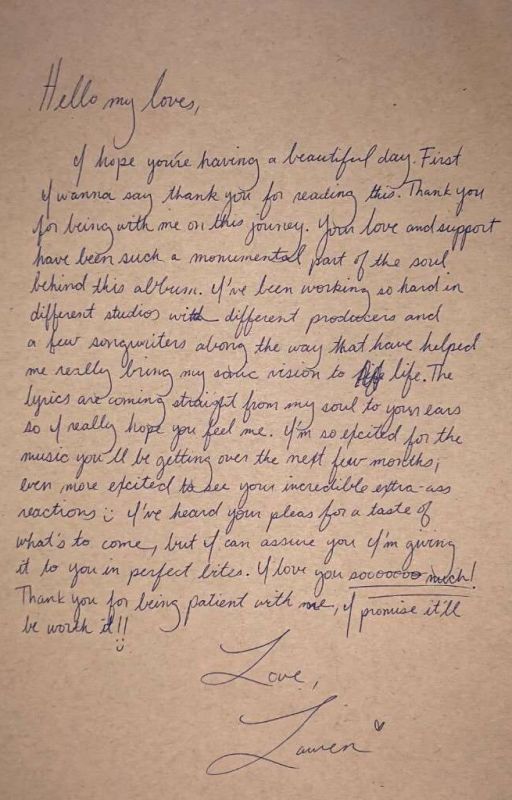 Hello my loves,
I hope you're having a beautiful day. First
I wanna say thank you for reading this. Thank you
for being with me on this journey. Your love and support
have been such a monumental part of the soul
behind this album. I've been working so hard in
different studios with different producers and
a few songwriters along the way that have helped
me really bring my sonic vision to life. The
lyrics are coming straight from my soul to your ears
so I really hope you feel me. I'm so excited for the
music you'll be getting over the next few months;
even more excited to see your incredible extra-ass
reactions :) I've heard your pleas for a taste of
what's to come, but I can assure you I'm giving
it to you in perfect bites. I love you soooooooo much!
Thank you for being patient with me, I promise it'll
be worth it!! :)
Love,
Lauren